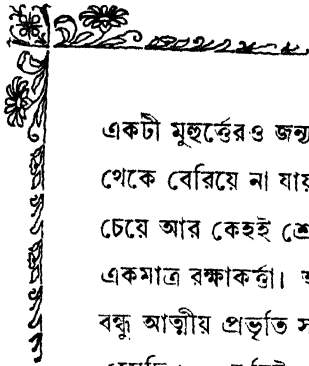 একটী মুহুর্ত্তেরও জন্য
থেকে বেরিয়ে না যায়
চেয়ে আর কেহই
একমাত্র রক্ষাকর্ত্তা।
বন্ধু আত্মীয় প্রভৃতি